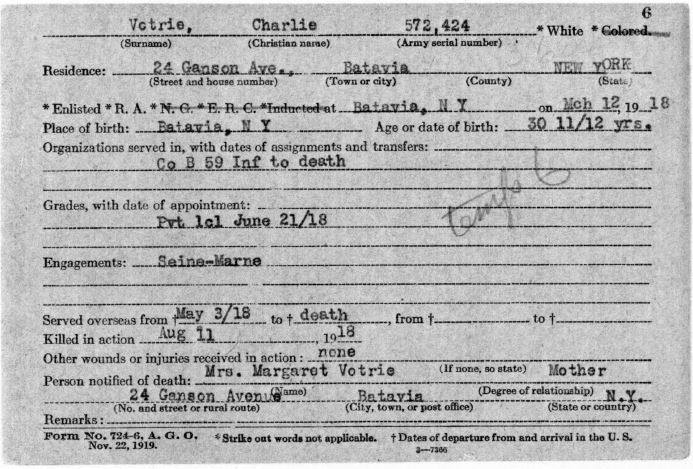 6
Votrie, Charlie 572,424 * White * Colored.
(Surname) (Christian name) (Army serial number)
Residence: 24 Ganson Ave., Batavia NEW YORK
(Street and house number) (Town or city) (County) (State)
* Enlisted * R. A. * N. G. * E. R. C. * Inducted at Batavia, N Y on Mch 12 1918
Place of birth: Batavia, N Y Age or date of birth: 30 11/12 yrs.
Organizations served in, with dates of assignments and transfers:
Co B 59 Inf to death
Grades, with date of appointment:
Pvt 1cl June 21/18
temps 6
Engagements: Seine-Marne
Served overseas from † May 3/18 to † death, from † to †
Killed in action Aug 11, 1918
Other wounds or injuries received in action: none
(If none, so state)
Person notified of death: Mrs. Margaret Votrie Mother
(Name) (Degree of relationship)
24 Ganson Avenue Batavia N.Y.
(No. and street or rural route) (City, town, or post office) (State or country)
Remarks:
Form No. 724-6, A. G. O. * Strike out words not applicable. † Dates of departure from and arrival in the U. S.
Nov. 22, 1919. 3—7366